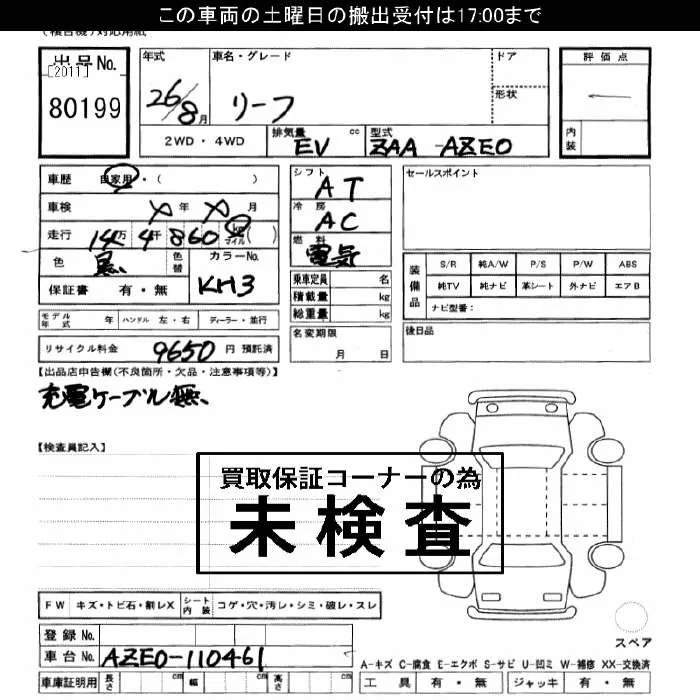 この車両の土曜日の搬出受付は17:00まで
出品No. 年式 車名・グレード ドア 評価点
[2011]
80199 26/8月 リーフ 形状
2WD・4WD 排気量 cc 型式 内装
EV ZAA-AZE0
車歴 自家用・( ) シフト AT セールスポイント
車検 メ年 メ月 冷房 AC
走行 14万4千860 km マイル ( ) 燃料 電気
色 黒 色替 カラーNo. KH3 装備品 S/R 純A/W P/S P/W ABS
保証書 有・無 乗車定員 名 純TV 純ナビ 革シート 外ナビ エアB
積載量 kg ナビ型番:
モデル年式 年 ハンドル 左・右 ディーラー・並行 総重量 kg
リサイクル料金 9650 円 預託済 名変期限 月 日 後日品
【出品店申告欄(不良箇所・欠品・注意事項等)】
充電ケーブル無、
【検査員記入】
買取保証コーナーの為
未検査
FW キズ・トビ石・割レX シート内装 コゲ・穴・汚レ・シミ・破レ・スレ
スペア
登録No.
車台No. AZE0-110461
A-キズ C-腐食 E-エクボ S-サビ U-凹ミ W-補修 XX-交換済
車庫証明用 長さ cm 幅 cm 高さ cm 工具 有・無 ジャッキ 有・無